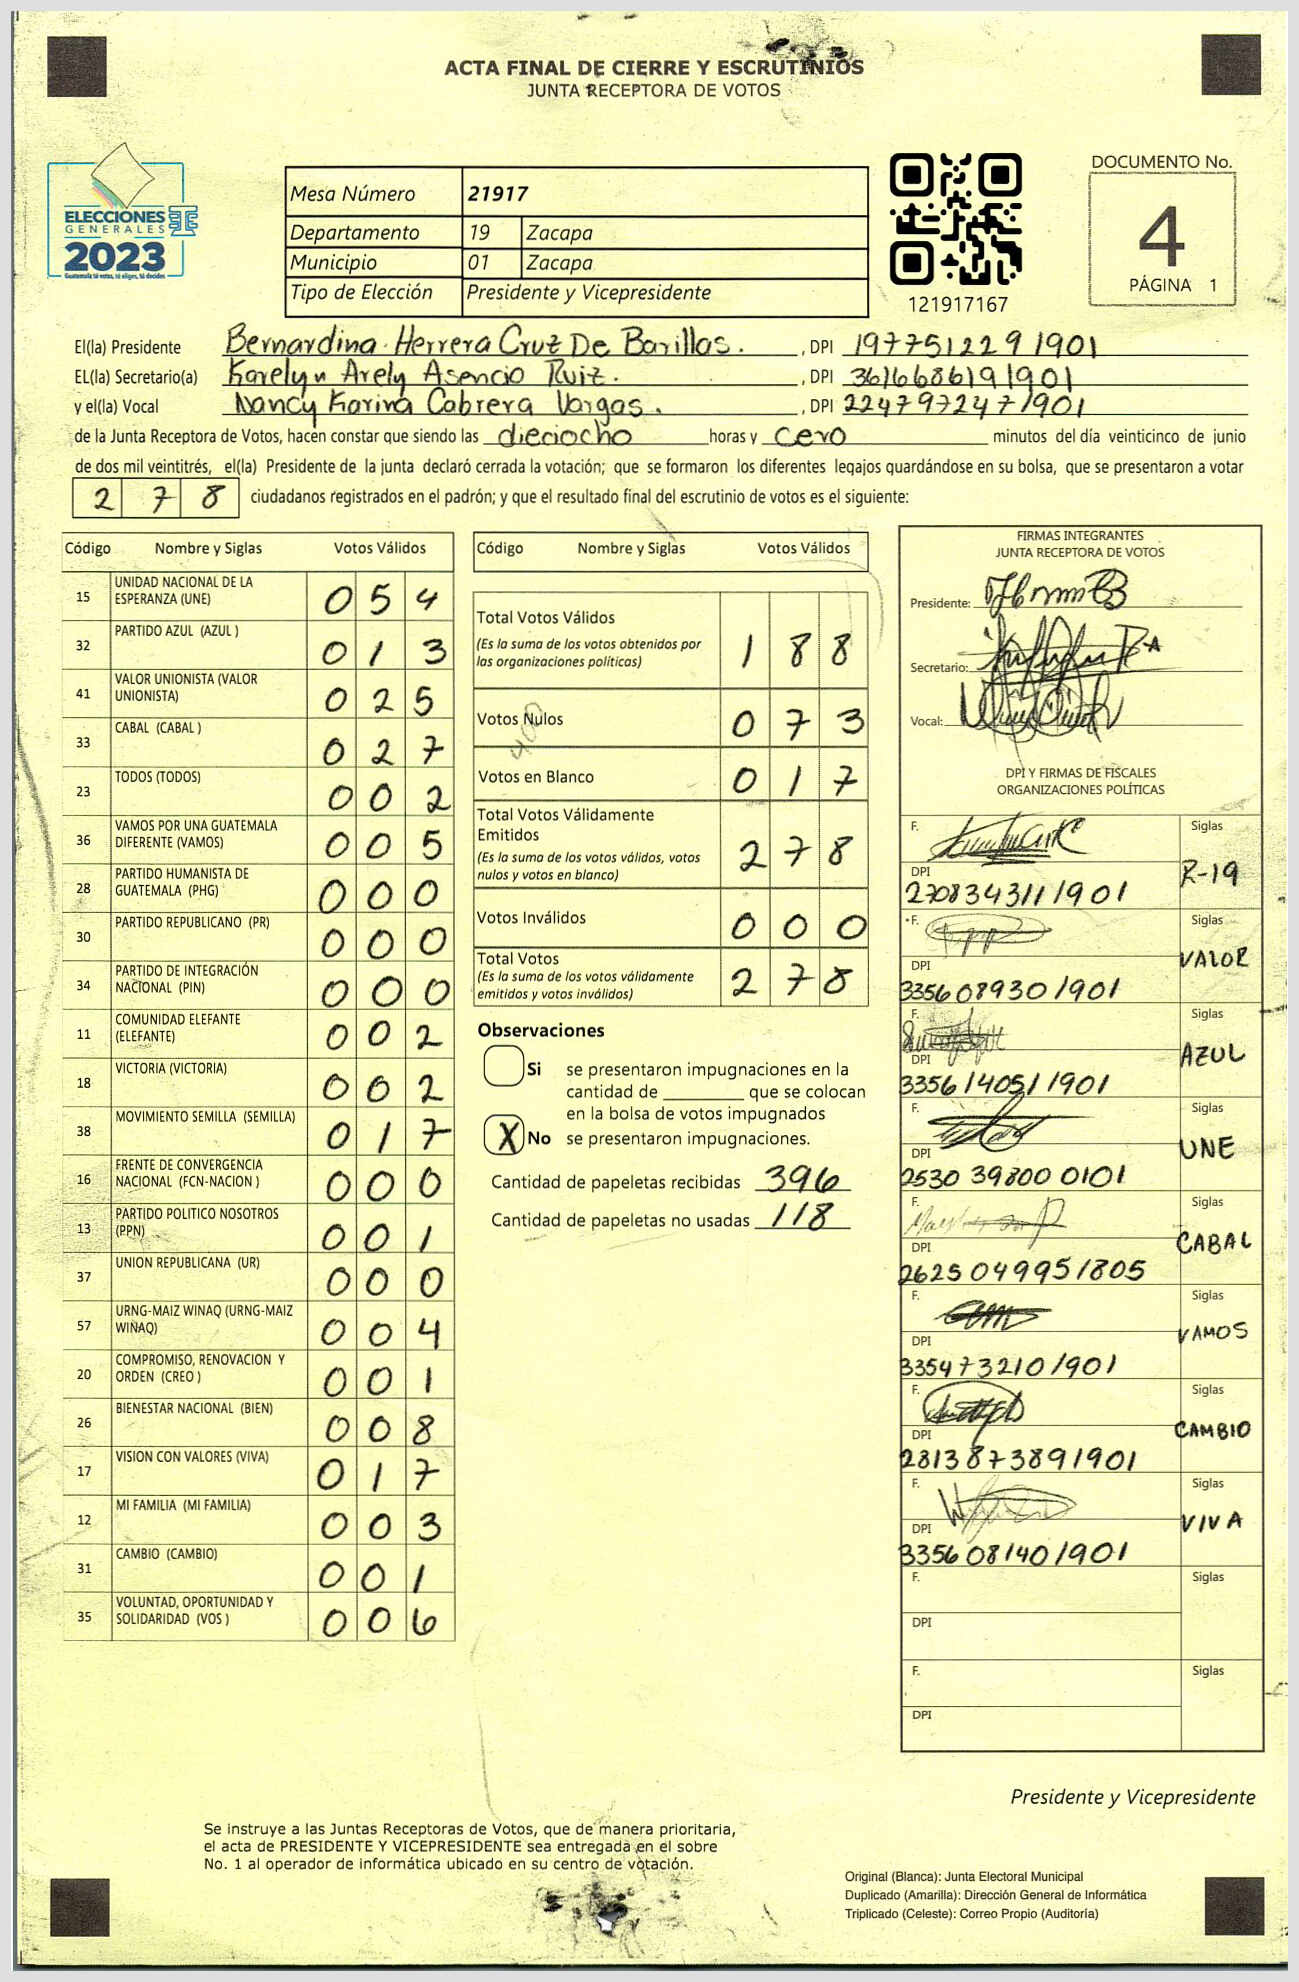 ACTA FINAL DE CIERRE Y ESCRUTINIOS
JUNTA RECEPTORA DE VOTOS
ELECCIONES
GENERALES
2023
Guatemala tú votas, tú eliges, tú decides
Mesa Número 21917
Departamento 19 Zacapa
Municipio 01 Zacapa
Tipo de Elección Presidente y Vicepresidente
121917167
DOCUMENTO No.
4
PÁGINA 1
El(la) Presidente Bernardina Herrera Cruz De Barillas. , DPI 1977512291901
EL(la) Secretario(a) Karelyn Arely Asencio Ruiz. , DPI 3616686191901
y el(la) Vocal Nancy Karina Cabrera Vargas. , DPI 2247972471901
de la Junta Receptora de Votos, hacen constar que siendo las dieciocho horas y cero minutos del día veinticinco de junio
de dos mil veintitrés, el(la) Presidente de la junta declaró cerrada la votación; que se formaron los diferentes legajos guardándose en su bolsa, que se presentaron a votar
2 7 8 ciudadanos registrados en el padrón; y que el resultado final del escrutinio de votos es el siguiente:
Código Nombre y Siglas Votos Válidos
15 UNIDAD NACIONAL DE LA ESPERANZA (UNE) 0 5 4
32 PARTIDO AZUL (AZUL ) 0 1 3
41 VALOR UNIONISTA (VALOR UNIONISTA) 0 2 5
33 CABAL (CABAL ) 0 2 7
23 TODOS (TODOS) 0 0 2
36 VAMOS POR UNA GUATEMALA DIFERENTE (VAMOS) 0 0 5
28 PARTIDO HUMANISTA DE GUATEMALA (PHG) 0 0 0
30 PARTIDO REPUBLICANO (PR) 0 0 0
34 PARTIDO DE INTEGRACIÓN NACIONAL (PIN) 0 0 0
11 COMUNIDAD ELEFANTE (ELEFANTE) 0 0 2
18 VICTORIA (VICTORIA) 0 0 2
38 MOVIMIENTO SEMILLA (SEMILLA) 0 1 7
16 FRENTE DE CONVERGENCIA NACIONAL (FCN-NACION ) 0 0 0
13 PARTIDO POLITICO NOSOTROS (PPN) 0 0 1
37 UNION REPUBLICANA (UR) 0 0 0
57 URNG-MAIZ WINAQ (URNG-MAIZ WINAQ) 0 0 4
20 COMPROMISO, RENOVACION Y ORDEN (CREO ) 0 0 1
26 BIENESTAR NACIONAL (BIEN) 0 0 8
17 VISION CON VALORES (VIVA) 0 1 7
12 MI FAMILIA (MI FAMILIA) 0 0 3
31 CAMBIO (CAMBIO) 0 0 1
35 VOLUNTAD, OPORTUNIDAD Y SOLIDARIDAD (VOS ) 0 0 6
Código Nombre y Siglas Votos Válidos
Total Votos Válidos
(Es la suma de los votos obtenidos por
las organizaciones políticas) 1 8 8
Votos Nulos 0 7 3
400
Votos en Blanco 0 1 7
Total Votos Válidamente
Emitidos
(Es la suma de los votos válidos, votos
nulos y votos en blanco) 2 7 8
Votos Inválidos 0 0 0
Total Votos
(Es la suma de los votos válidamente
emitidos y votos inválidos) 2 7 8
Observaciones
Si se presentaron impugnaciones en la
cantidad de ________ que se colocan
en la bolsa de votos impugnados
X No se presentaron impugnaciones.
Cantidad de papeletas recibidas 396
Cantidad de papeletas no usadas 118
FIRMAS INTEGRANTES
JUNTA RECEPTORA DE VOTOS
Presidente:
Secretario:
Vocal:
DPI Y FIRMAS DE FISCALES
ORGANIZACIONES POLÍTICAS
F. Siglas
DPI R-19
2708343111901
F. Siglas
DPI VALOR
3356089301901
F. Siglas
DPI AZUL
3356140511901
F. Siglas
DPI UNE
2530 39800 0101
F. Siglas
DPI CABAL
2625049951805
F. Siglas
DPI VAMOS
3354732101901
F. Siglas
DPI CAMBIO
2813873891901
F. Siglas
DPI VIVA
3356081401901
F. Siglas
DPI
F. Siglas
DPI
Presidente y Vicepresidente
Se instruye a las Juntas Receptoras de Votos, que de manera prioritaria,
el acta de PRESIDENTE Y VICEPRESIDENTE sea entregada en el sobre
No. 1 al operador de informática ubicado en su centro de votación.
Original (Blanca): Junta Electoral Municipal
Duplicado (Amarilla): Dirección General de Informática
Triplicado (Celeste): Correo Propio (Auditoría)